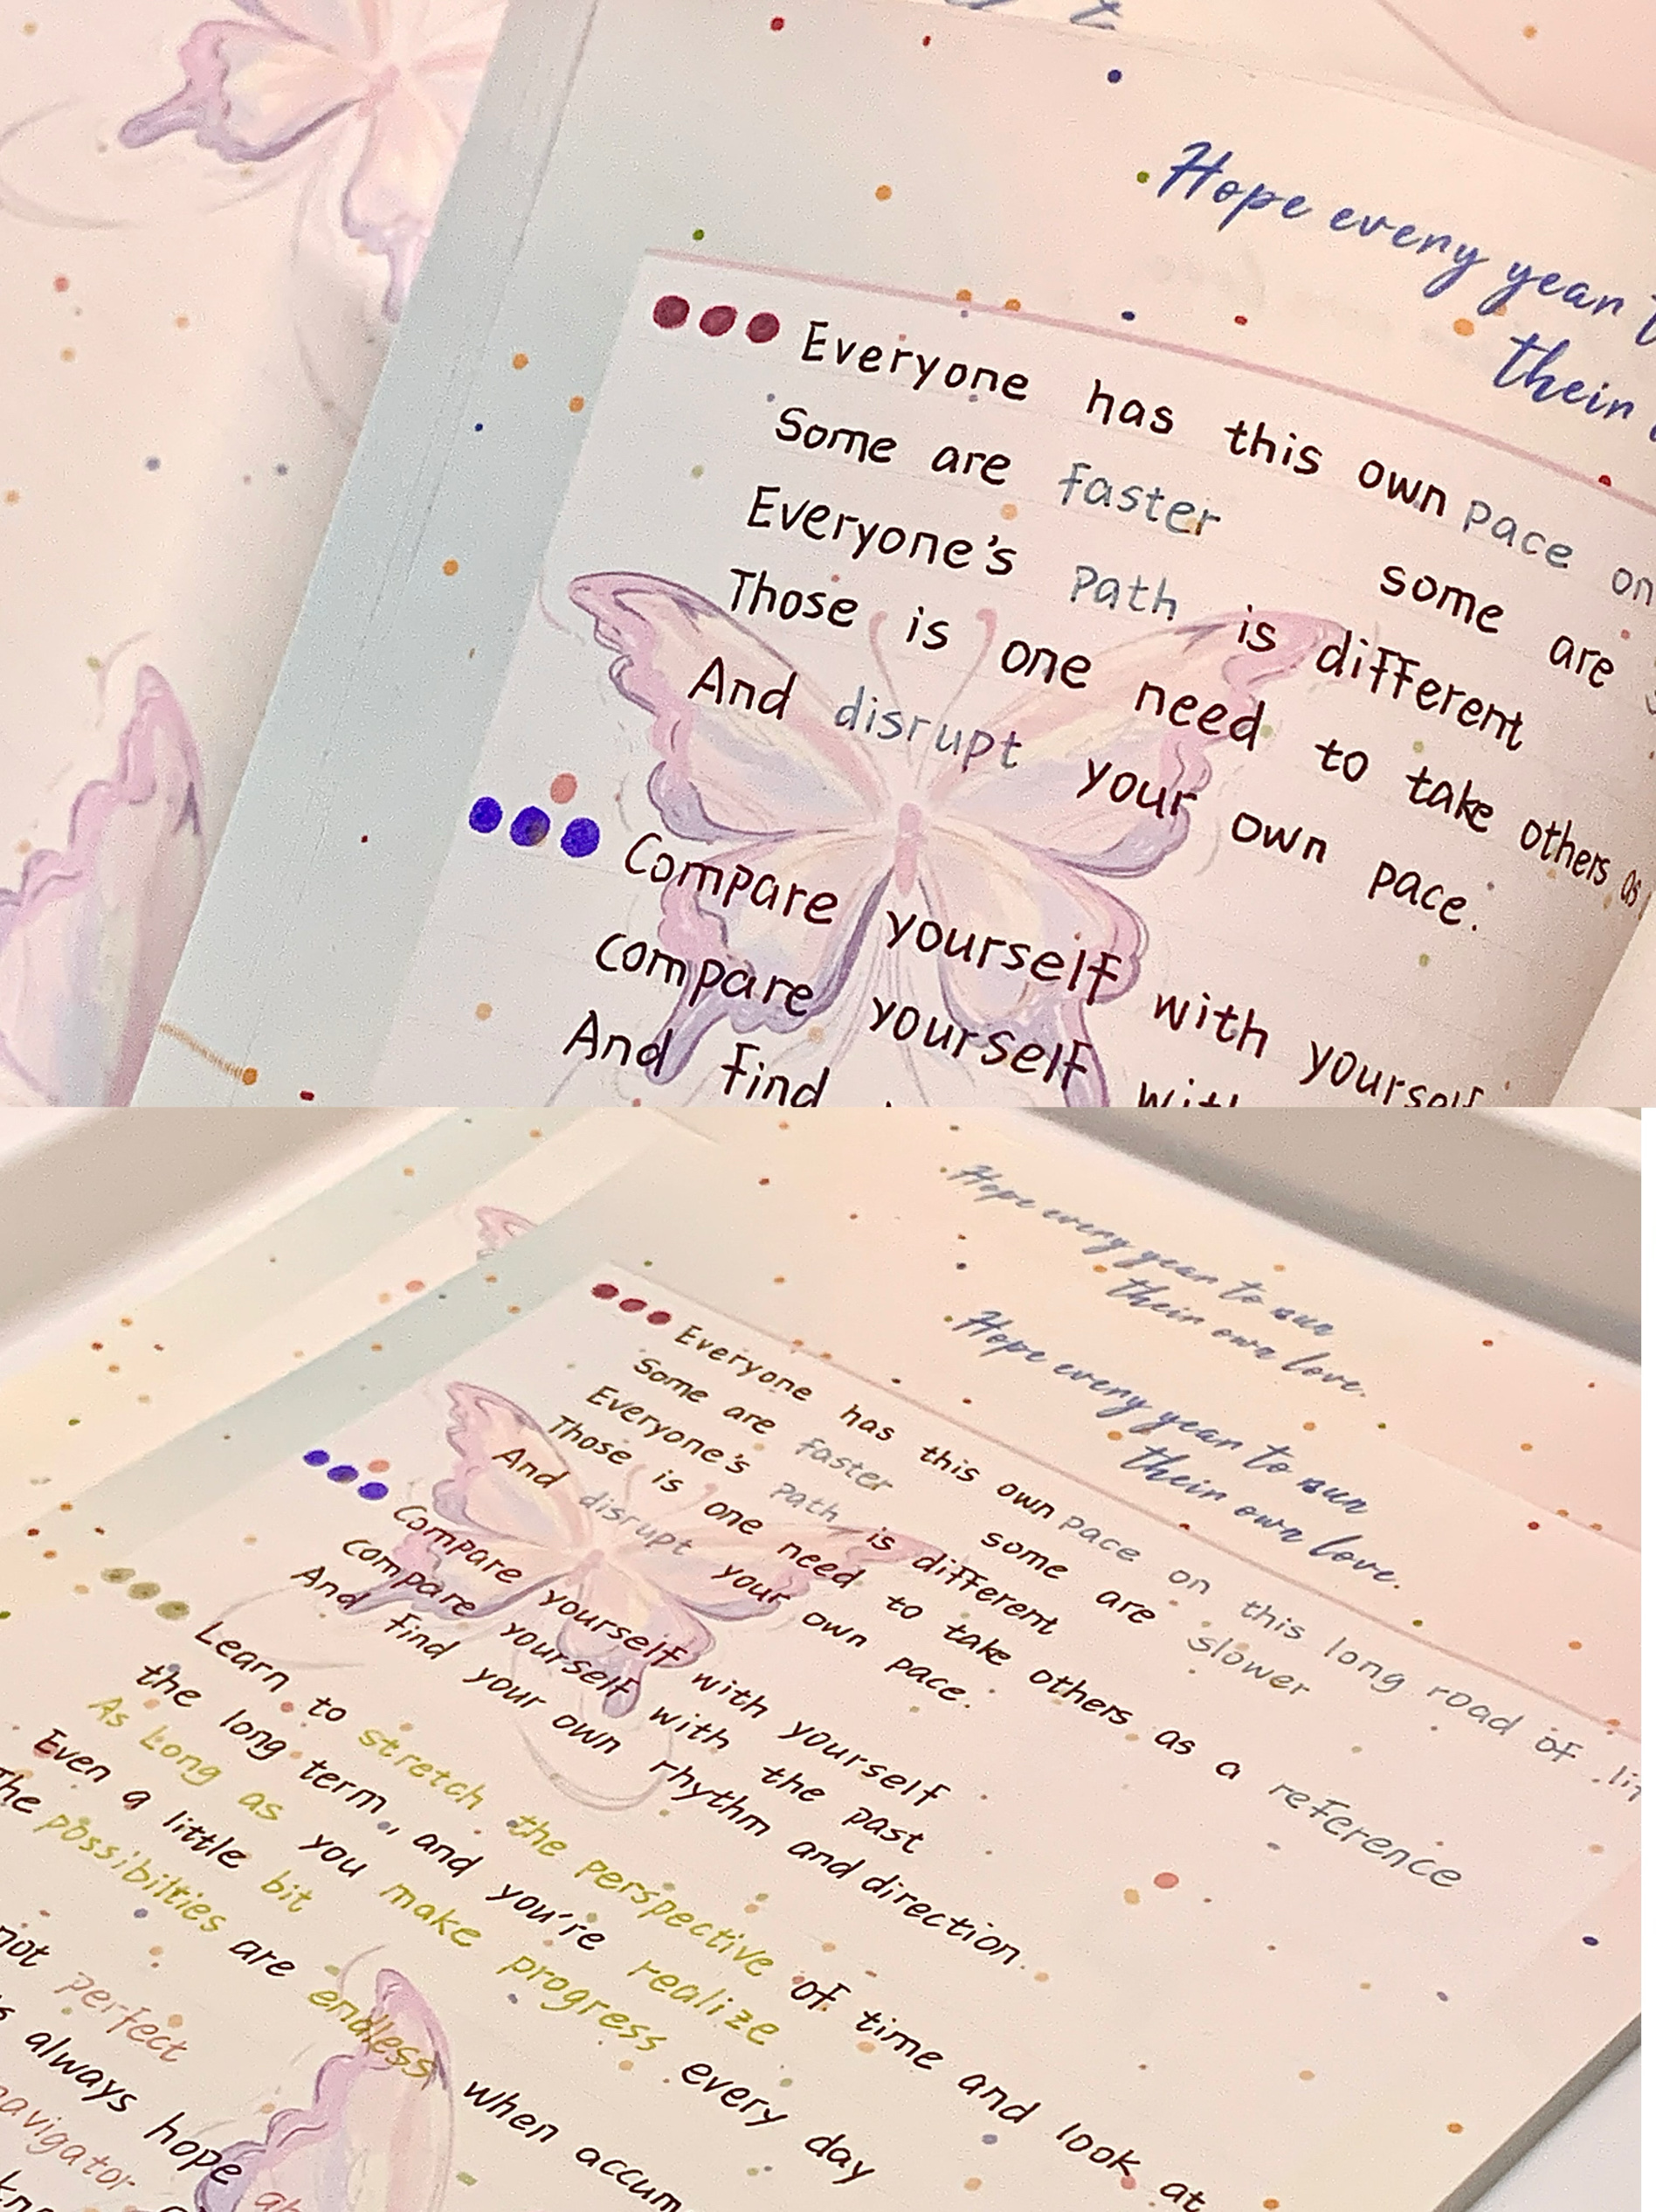 Hope every year
thein
Everyone has this own pace on
Some are faster some are
Everyone's path is different
Those is one need to take others as
And disrupt your own pace.
Compare yourself with yourself
compare yourself
And find
Hope every year to sun
thein own love.
Hope every year to sun
thein own love.
Everyone has this own pace on this long road of
Some are faster some are slower
Everyone's path is different
Those is one need to take others as a reference
And disrupt your own pace.
Compare yourself with yourself
compare yourself with the past
And find your own rhythm and direction.
Learn to stretch the perspective of time and look at
the long term, and you're realize
As long as you make progress every day
Even a little bit
The possibilties are endless when
not perfect
always hope
navigator